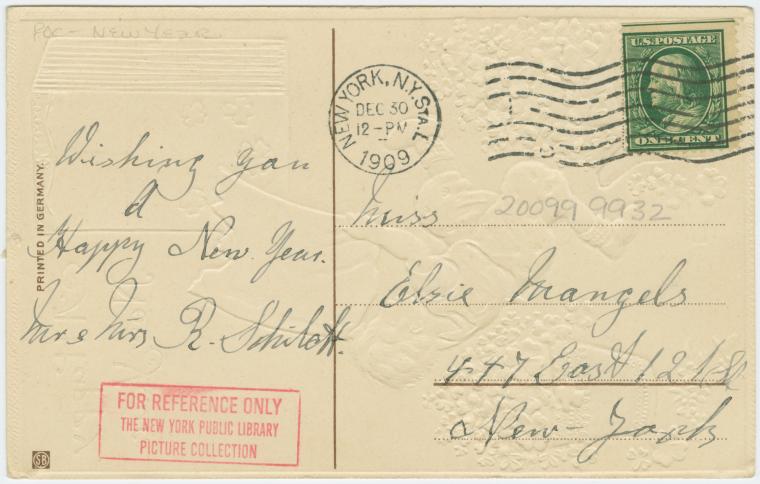 POC - NEW YEAR
PRINTED IN GERMANY.
Wishing you
A
Happy New Year.
Mr & Mrs R.
FOR REFERENCE ONLY
THE NEW YORK PUBLIC LIBRARY
PICTURE COLLECTION
SB
NEW YORK, N.Y. STA. L
DEC 30
12-PM
1909
U.S. POSTAGE
ONE CENT
20099 9932
Miss
Elsie Mangels
447 East 121 St
New-York